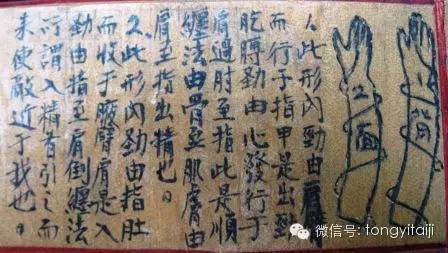 背
面
1.此形内勁由肩
而行于指甲是出勁
肐膊勁由心發行于
肩過肘至指此是順
纏法由骨至肌膚由
肩至指出精也.
2.此形内勁由指肚
而收于腋臂肩是入
勁由指至肩倒纏法
所謂入精者引之而
来使敵近于我也.
微信号: tongyitaiji